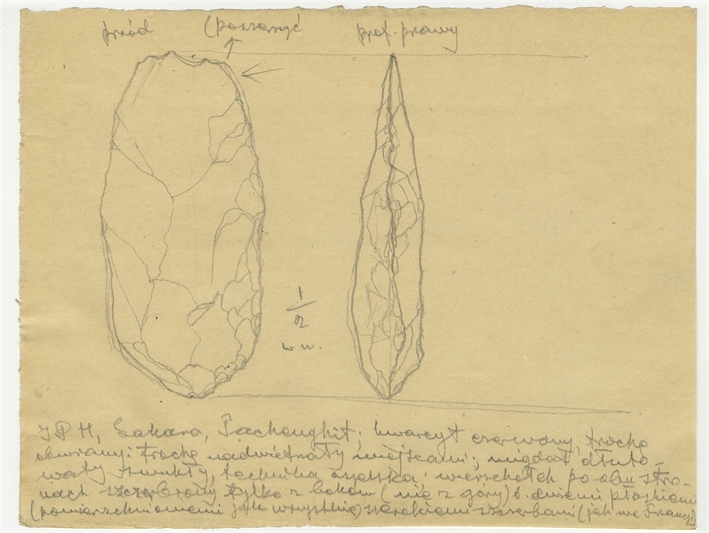 przód (poszerzyć prof. prawy
1/2
w. w.
IPH, Sahara, Tachenghit; kwarcyt czerwony, trochę
trochę nadwietrzały miejscami; migdał dłuto-
waty smukły, technika; wierzchołek po obu stro-
nach szczerbiony tylko z boków (nie z góry) b. dużemi płaskiemi
(powierzchniowemi jak wszystkie) szerokiemi szczerbami (jak we Francji)